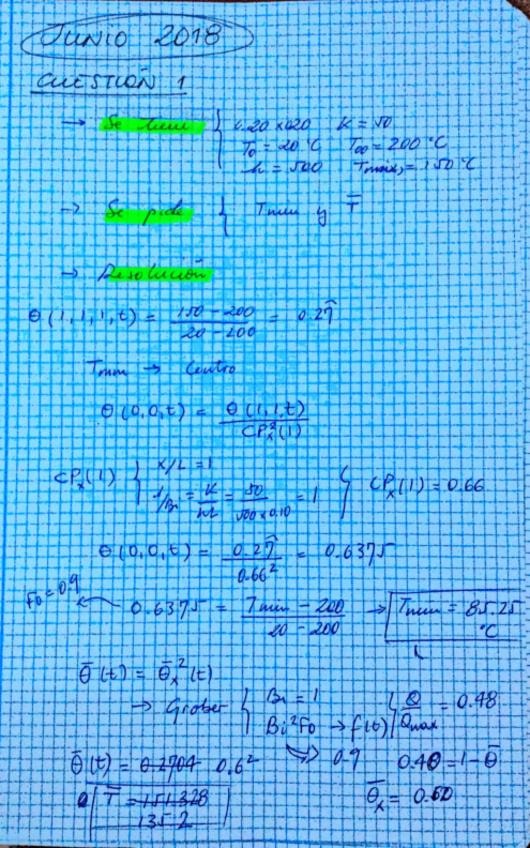 JUNIO 2018
CUESTIÓN 1
→ Se tiene { 0.20 x 020 K = 50
T₀ = 20 °C T∞ = 200 °C
h = 500 Tmáx, = 150 °C
→ Se pide { Tmin y T̅
→ Resolución
θ(1,1,1,t) = (150 - 200)/(20 - 200) = 0.27̂
Tmin → Centro
θ(0,0,t) = θ(1,1,t)/CPx²(1)
CPx(1) { x/L = 1
1/Bi = K/hL = 50/(500x0.10) = 1 } CPx(1) = 0.66
θ(0,0,t) = 0.27̂/0.66² = 0.6375
Fo = 0.9 ← 0.6375 = (Tmin - 200)/(20 - 200) → Tmin = 85.25 °C
θ̅(t) = θ̅x²(t)
→ Grober { Bi = 1
Bi²Fo → f(t) } Q/Qmax = 0.48
θ̅(t) = 0.2704 0.6² ⇒ 0.9 0.40 = 1 - θ̅
T̅ = 151.328 θ̅x = 0.60
135.2